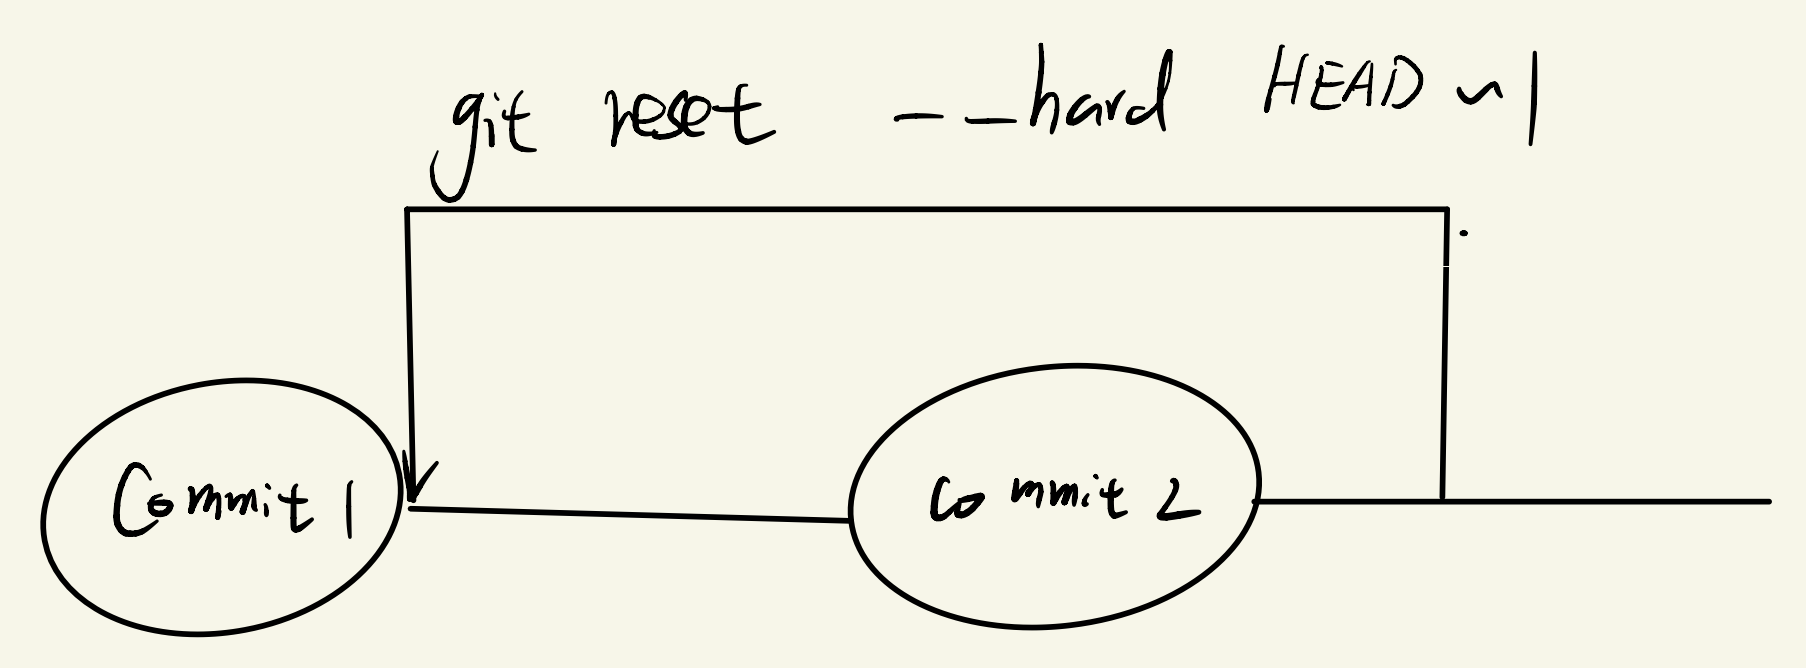 git reset --hard HEAD ~1
Commit 1
Commit 2